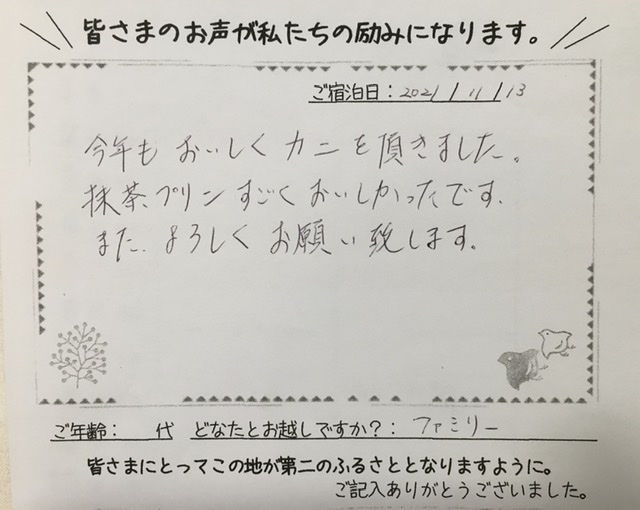 皆さまのお声が私たちの励みになります。
ご宿泊日：2021/11/13
今年も おいしく カニを頂きました。
抹茶プリン すごく おいしかったです.
また. よろしく お願い致します.
ご年齢：　代 どなたとお越しですか？：ファミリー
皆さまにとってこの地が第二のふるさととなりますように。
ご記入ありがとうございました。